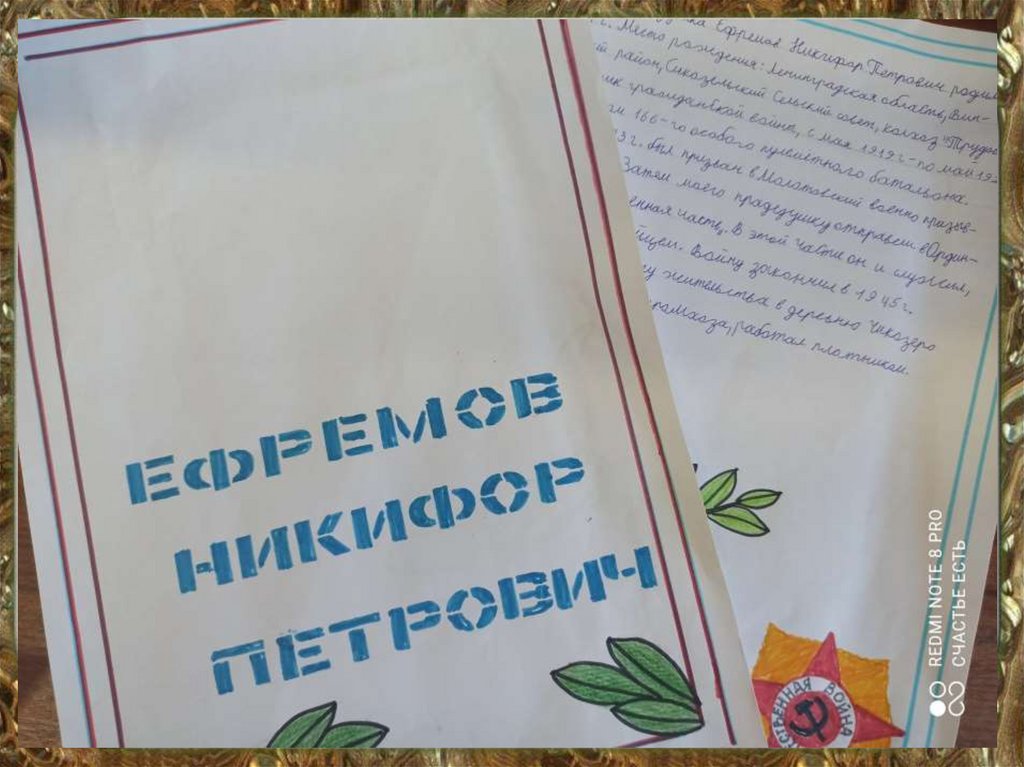 ЕФРЕМОВ
НИКИФОР
ПЕТРОВИЧ
Ефремов Никифор Петрович родил
г. Место рождения: Ленинградская область, Вин-
район, Сиказемский Сельский совет, колхоз "Трудов
ик гражданской войны, с мая 1919 г. - по май 19
166-го особого пулемётного батальона.
3 г. был призван в Молотовский военно призыв-
Затем моего прадедушку отправили в Ордин-
енная часть. В этой части он и служил,
йцем. Войну закончил в 1945 г.
у жительства в деревню Чикозеро
работал плотником.
СТВЕННАЯ ВОЙНА
REDMI NOTE 8 PRO
СЧАСТЬЕ ЕСТЬ